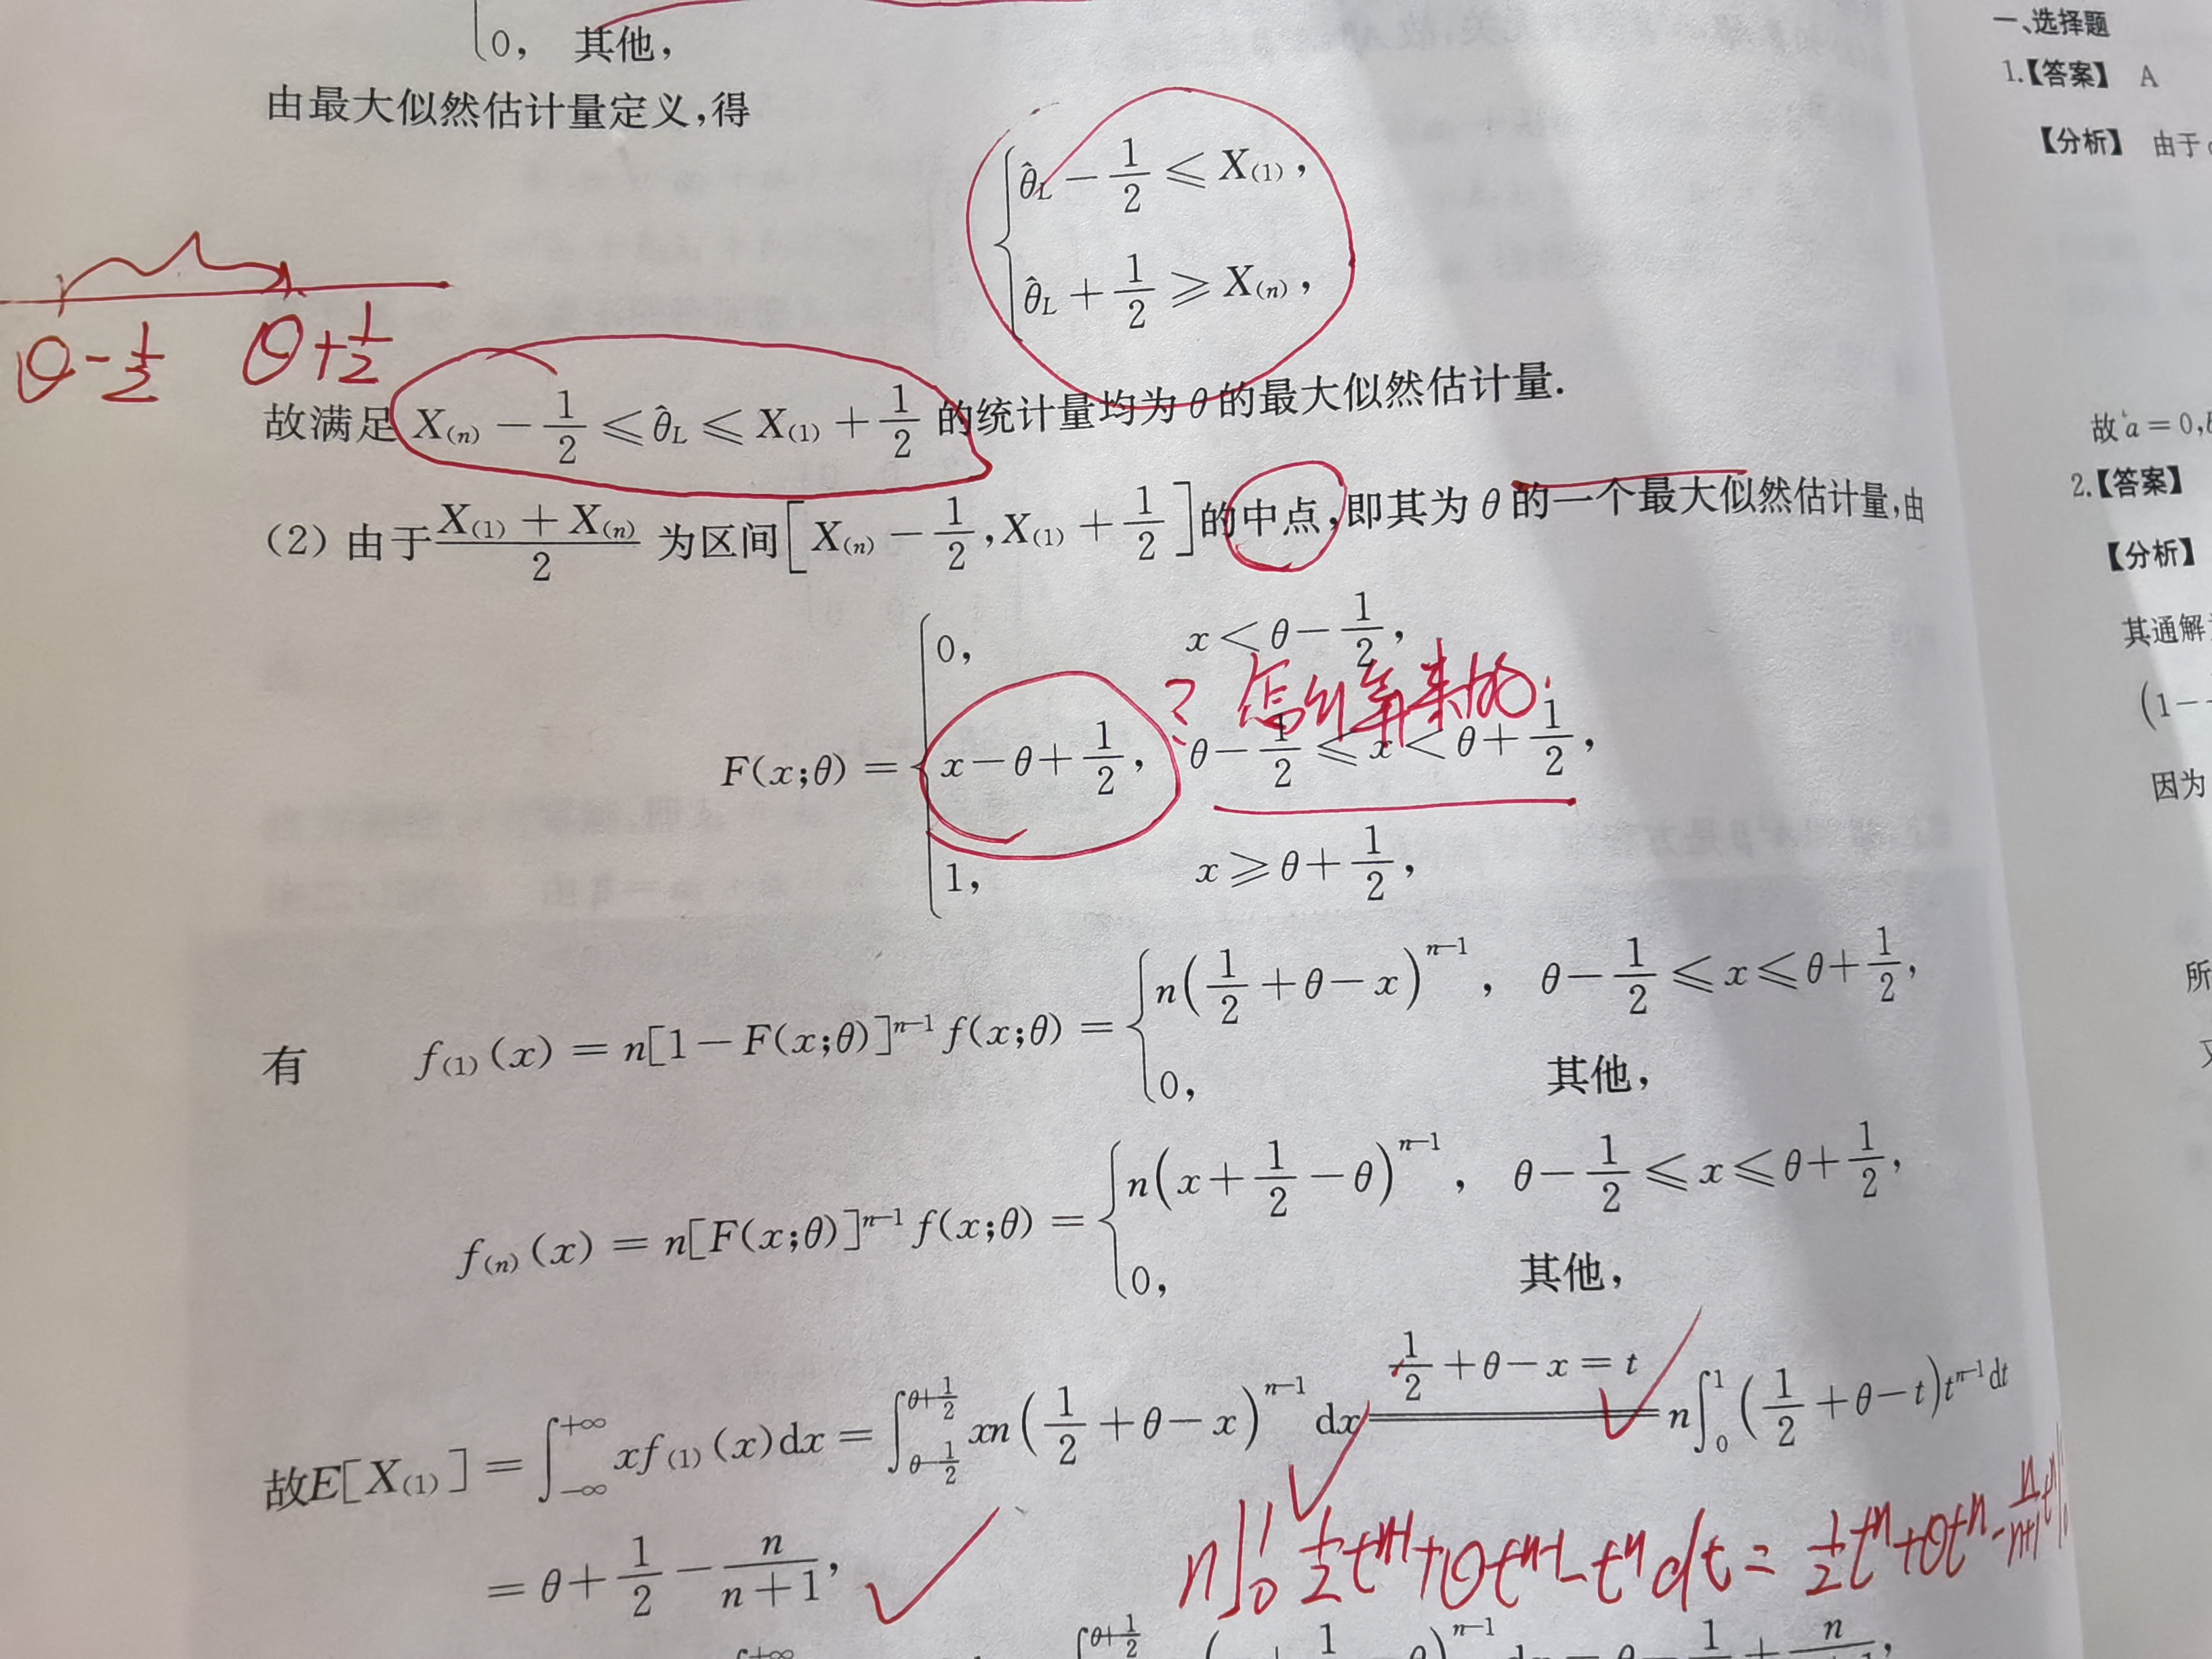 0, 其他,
由最大似然估计量定义,得
θ̂_L − 1/2 ⩽ X_(1),
θ̂_L + 1/2 ⩾ X_(n),
θ−1/2 θ+1/2
故满足 X_(n) − 1/2 ⩽ θ̂_L ⩽ X_(1) + 1/2 的统计量均为 θ 的最大似然估计量.
(2) 由于 (X_(1) + X_(n))/2 为区间[X_(n) − 1/2, X_(1) + 1/2]的中点,即其为 θ 的一个最大似然估计量,由
0, x < θ − 1/2,
? 怎么算来的
F(x;θ) = { x − θ + 1/2, θ − 1/2 ⩽ x < θ + 1/2,
1, x ⩾ θ + 1/2,
有 f_(1)(x) = n[1 − F(x;θ)]^{n−1} f(x;θ) = { n(1/2 + θ − x)^{n−1}, θ − 1/2 ⩽ x ⩽ θ + 1/2,
0, 其他,
f_(n)(x) = n[F(x;θ)]^{n−1} f(x;θ) = { n(x + 1/2 − θ)^{n−1}, θ − 1/2 ⩽ x ⩽ θ + 1/2,
0, 其他,
故E[X_(1)] = ∫_{−∞}^{+∞} x f_(1)(x)dx = ∫_{θ−1/2}^{θ+1/2} xn(1/2 + θ − x)^{n−1} dx ==(1/2 + θ − x = t)== n∫_0^1 (1/2 + θ − t)t^{n−1}dt
= θ + 1/2 − n/(n+1),
n∫_0^1 1/2 t^{n-1} + θt^{n-1} − t^n dt = 1/2 t^n + θt^n − n/(n+1)
一、选择题
1.【答案】 A
【分析】 由于
故 a = 0,
2.【答案】
【分析】
其通解
(1 −
因为
所